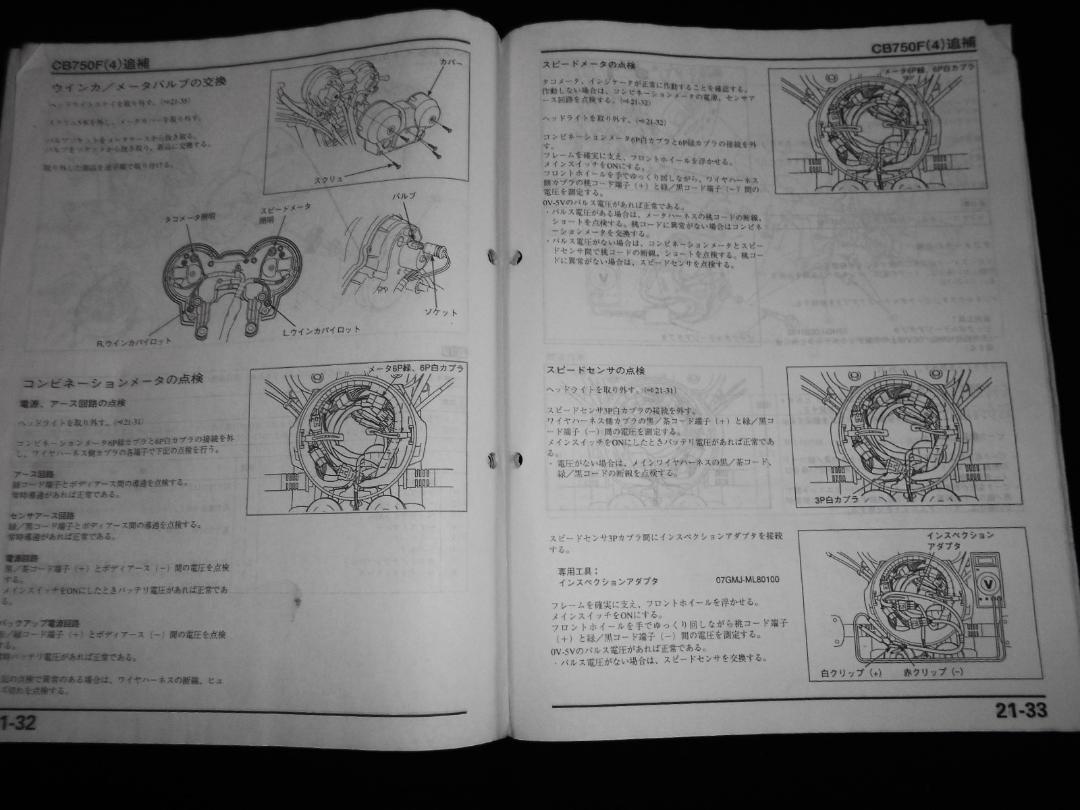 CB750F(4)追補
ウインカ／メータバルブの交換
ヘッドライトステイを取り外す。
スクリュ5本を外し、メータカバーを取り外す。
バルブソケットをメータケースから抜き取る。
バルブをソケットから抜き取り、新品に交換する。
取り外した部品を逆手順で取り付ける。
カバー
スクリュー
タコメータ照明
スピードメータ
照明
バルブ
ソケット
L.ウインカパイロット
R.ウインカパイロット
コンビネーションメータの点検
電源、アース回路の点検
ヘッドライトを取り外す。(⇨21-31)
コンビネーションメータ6P緑カプラと6P白カプラの接続を外
し、ワイヤハーネス側カプラの各端子で下記の点検を行う。
アース回路
緑コード端子とボディアース間の導通を点検する。
常時導通があれば正常である。
センサアース回路
緑／黒コード端子とボディアース間の導通を点検する。
常時導通があれば正常である。
電源回路
黒／茶コード端子（+）とボディアース（−）間の電圧を点検
する。
メインスイッチをONにしたときバッテリ電圧があれば正常であ
る。
バックアップ電源回路
／緑コード端子（+）とボディアース（−）間の電圧を点検
する。
常時バッテリ電圧があれば正常である。
記の点検で異常のある場合は、ワイヤハーネスの断線、ヒュ
ズ切れを点検する。
メータ6P緑、6P白カプラ
1-32
CB750F(4)追補
スピードメータの点検
タコメータ、インジケータが正常に作動することを確認する。
作動しない場合は、コンビネーションメータの電源、センサア
ース回路を点検する。(⇨21-32)
ヘッドライトを取り外す。(⇨21-32)
コンビネーションメータ6P白カプラと6P緑カプラの接続を外
す。
フレームを確実に支え、フロントホイールを浮かせる。
メインスイッチをONにする。
フロントホイールを手でゆっくり回しながら、ワイヤハーネス
側カプラの桃コード端子（+）と緑／黒コード端子（−）間の
電圧を測定する。
0V-5Vのパルス電圧があれば正常である。
・パルス電圧がある場合は、メータハーネスの桃コードの断線、
ショートを点検する。桃コードに異常がない場合はコンビネ
ーションメータを交換する。
・パルス電圧がない場合は、コンビネーションメータとスピー
ドセンサ間で桃コードの断線、ショートを点検する。桃コー
ドに異常がない場合は、スピードセンサを点検する。
メータ6P緑、6P白カプラ
スピードセンサの点検
ヘッドライトを取り外す。(⇨21-31)
スピードセンサ3P白カプラの接続を外す。
ワイヤハーネス側カプラの黒／茶コード端子（+）と緑／黒コ
ード端子（−）間の電圧を測定する。
メインスイッチをONにしたときバッテリ電圧があれば正常であ
る。
・電圧がない場合は、メインワイヤハーネスの黒／茶コード、
緑／黒コードの断線を点検する。
3P白カプラ
スピードセンサ3Pカプラ間にインスペクションアダプタを接続
する。
専用工具：
インスペクションアダプタ 07GMJ-ML80100
フレームを確実に支え、フロントホイールを浮かせる。
メインスイッチをONにする。
フロントホイールを手でゆっくり回しながら桃コード端子
（+）と緑／黒コード端子（−）間の電圧を測定する。
0V-5Vのパルス電圧があれば正常である。
・パルス電圧がない場合は、スピードセンサを交換する。
インスペクション
アダプタ
V
白クリップ（+） 赤クリップ（−）
21-33